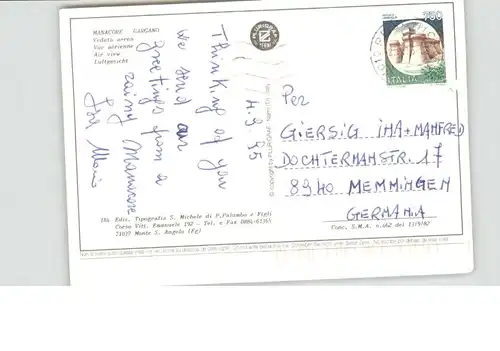 MANACORE GARGANO
Veduta aerea
Vue aérienne
Air view
Luftansicht
PLURIGRAF
TERNI
750
ITALIA
4.9.95
Thinking of you
we send our
greetings from a
rainy Manacore
Per
GIERSIG INA+MANFRED
DOCHTERMANSTR. 17
8940 MEMMINGEN
GERMANIA
Edit. Tipografia S. Michele di P. Palumbo e Figli
Corso Vitt. Emanuele 192 - Tel. e Fax 0884/61365
71037 Monte S. Angelo (Fg)
Conc. S.M.A. n.462 del 13/9/82